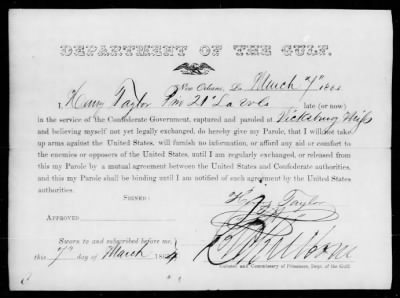 DEPARTMENT OF THE GULF.
New Orleans, La March 7th 186
I Henry Taylor 21st La Vols late (or now)
in the service of the Confederate Government, captured and paroled at Vicksburg Miss
and believing myself not yet legally exchanged, do hereby give my Parole, that I will not take
up arms against the United States, will furnish no information, or afford any aid or comfort to
the enemies or opposers of the United States, until I am regularly exchanged, or released from
this my Parole by a mutual agreement between the United States and Confederate authorities,
and this my Parole shall be binding until I am notified of such agreement by the United States
authorities.
SIGNED:
Henry Taylor
APPROVED
Sworn to and subscribed before me,
this 7th day of March 1864
Colonel and Commissary of Prisoners, Dept. of the Gulf.